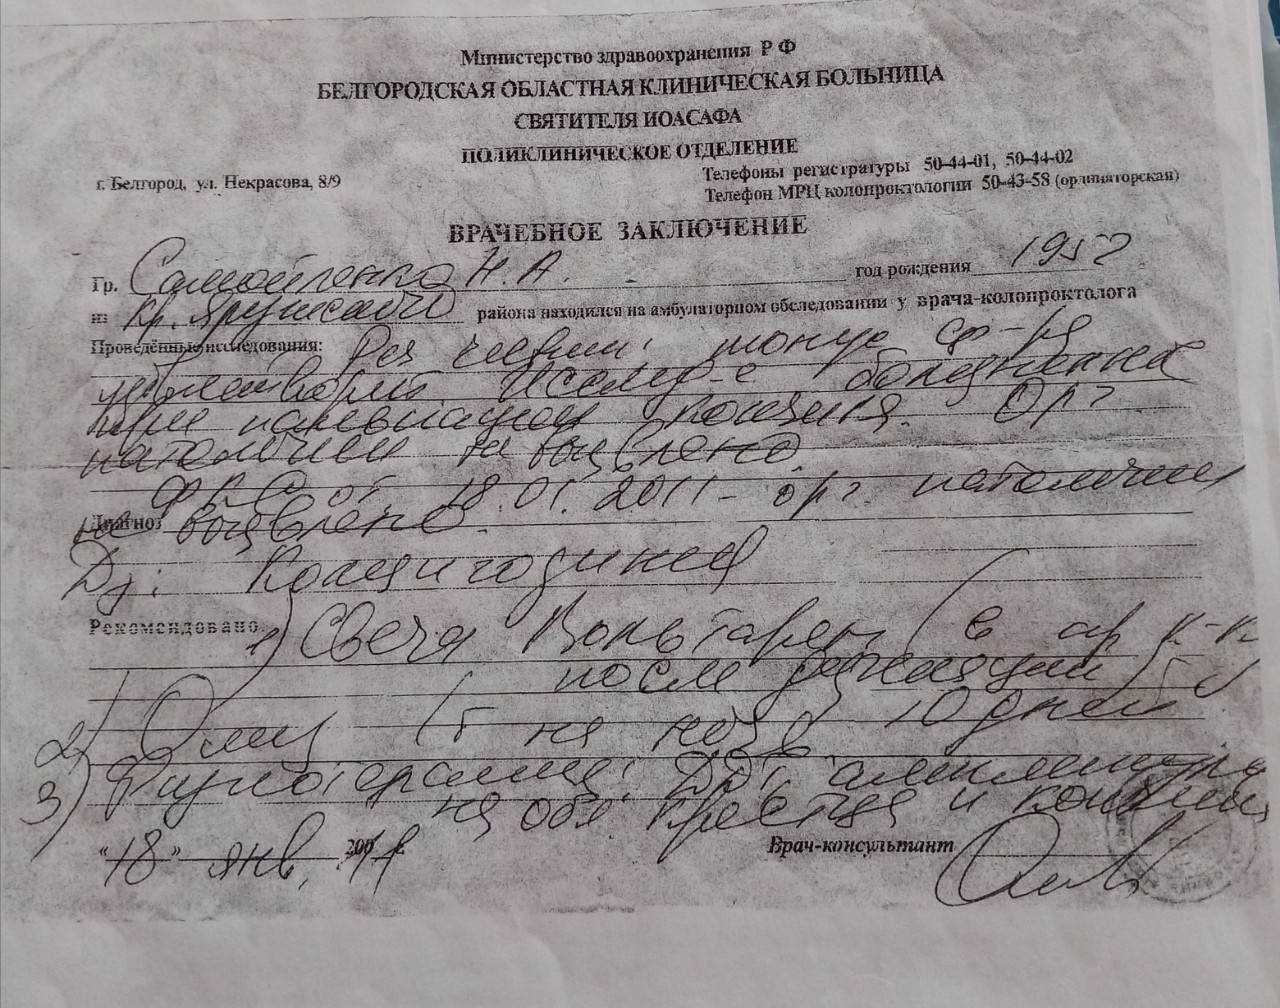 Министерство здравоохранения РФ
БЕЛГОРОДСКАЯ ОБЛАСТНАЯ КЛИНИЧЕСКАЯ БОЛЬНИЦА
СВЯТИТЕЛЯ ИОАСАФА
ПОЛИКЛИНИЧЕСКОЕ ОТДЕЛЕНИЕ
г. Белгород, ул. Некрасова, 8/9
Телефоны регистратуры 50-44-01, 50-44-02
Телефон МРЦ колопроктологии 50-43-58 (ординаторская)
ВРАЧЕБНОЕ ЗАКЛЮЧЕНИЕ
Гр. Самойленко Н. А. год рождения 1952
из Кр. Яружского района находился на амбулаторном обследовании у врача-колопроктолога
Проведённые исследования: Per тонус
болезненна
при пальпации копчика. Орг
патологии не выявлено
ФКС от 18.01.2011 - орг патологии
Диагноз не выявлено.
Дз: Кокцигодиния
Рекомендовано 1) Свечи Вольтарен (в
после дефекации)
2) (т на ночь) 10 дней
3) Физиотерапия: ДДТ,
на обл крестца и копчика
"18" янв. 2011
Врач-консультант